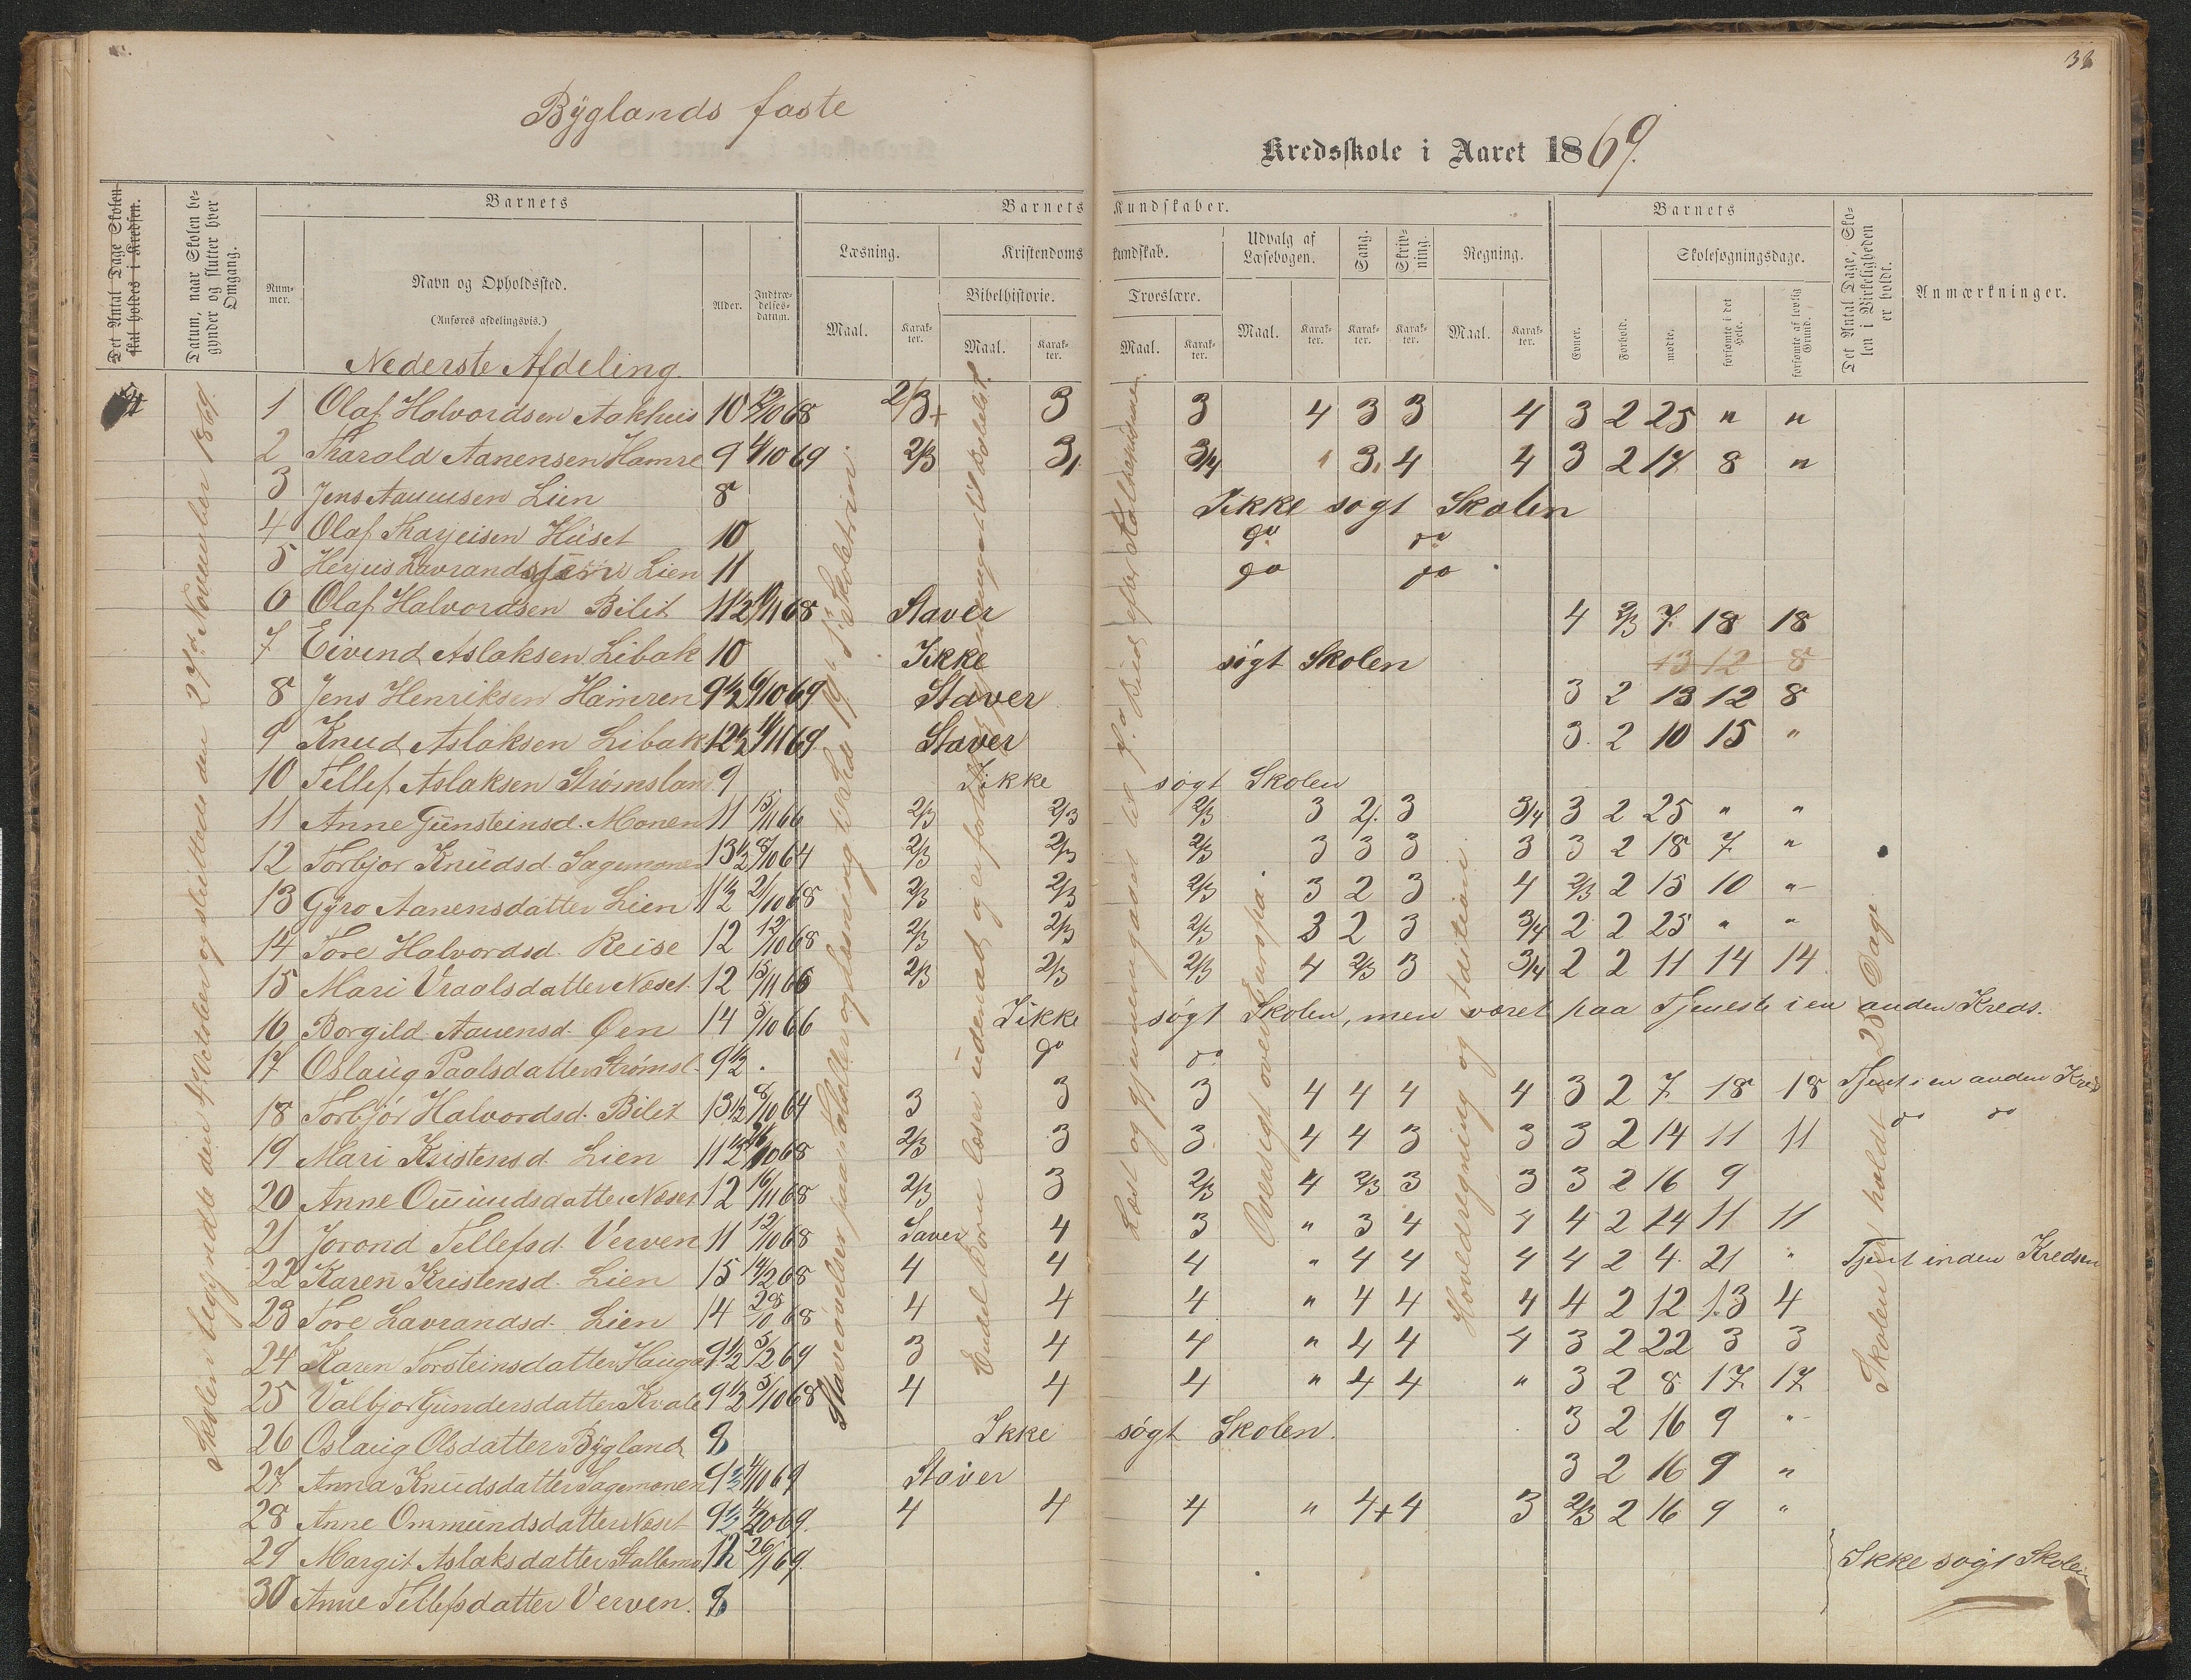 Bÿglands faste
Kredsskole i Aaret 1869.
38
Det Antal Dage Skolen skal holdes i Kredsen.
Datum, naar Skolen begynder og slutter hver Omgang.
Barnets
Nummer.
Navn og Opholdssted.
(Anføres afdelingsvis.)
Alder.
Indtrædelsesdatum.
Barnets Kundskaber.
Læsning.
Maal.
Karakter.
Kristendomskundskab.
Bibelhistorie.
Maal.
Karakter.
Troeslære.
Maal.
Karakter.
Udvalg af Læsebogen.
Maal.
Karakter.
Sang.
Karakter.
Skrivning.
Karakter.
Regning.
Maal.
Karakter.
Barnets
Evner.
Forhold.
Skolesøgningsdage.
mødte.
forsømte i det Hele.
forsømte af lovlig Grund.
Det Antal Dage, Skolen i Virkeligheden er holdt.
Anmærkninger.
Nederste Afdeling.
Skolen begyndte den 4de October og sluttede den 27de November 1869.
Staveøvelser paa Tabeller og Læsning
Endel Børn læser udenad og
Læst og gjennemgaaet til
Oversigt over Europa.
Hovedregning og
Skolen er holdt 25 Dage
1 Olaf Halvordsen Aakhus 10 12/10 68 2/3+ 3 3 4 3 3 4 3 2 25 " "
2 Tharald Aanensen Hamre 9 4/10 69 2/3 3 3/4 3 4 4 3 2 17 8 "
3 Jens Aanensen Lien 8 Ikke søgt Skolen
4 Olaf Tharjeisen Huset 10 do do
5 Herjus Lavrandsen Lien 11 do do
6 Olaf Halvordsen Bilit 11 1/2 68 Staver 4 2/3 7 18 18
7 Eivind Aslaksen Libak 10 Ikke søgt Skolen 13 12 8
8 Jens Henriksen Hamren 9 1/2 4/10 69 Staver 3 2 13 12 8
9 Knud Aslaksen Libak 12 1/2 69 Staver 3 2 10 15 "
10 Tellef Aslaksen Strømslan 9 Ikke søgt Skolen
11 Anne Gunsteinsd. Monen 11 15/11 66 2/3 2/3 2/3 3 2 3 3/4 3 2 25 " "
12 Torbjor Knudsd. Sagemonen 13 1/2 8/10 64 2/3 2/3 2/3 3 3 3 3 3 2 18 7 "
13 Gÿro Aanensdatter Lien 11 1/2 2/10 68 2/3 2/3 2/3 3 2 3 4 2/3 2 15 10 "
14 Tore Halvordsd. Reise 12 12/10 68 2/3 2/3 2/3 3 2 3 3/4 2 2 25 " "
15 Mari Vraalsdatter Næset 12 15/11 66 2/3 2/3 2/3 4 2/3 3 3/4 2 2 11 14 14
16 Borgild Aanensd. Øen 14 5/10 66 Ikke søgt Skolen, men været paa Tjeneste i en anden Kreds.
17 Oslaug Paalsdatter Strømsl. 9 1/2 do do
18 Torbjør Halvordsd. Bilit 13 1/2 8/10 64 3 3 3 4 4 4 4 3 2 7 18 18 Tjent i en anden Kreds
19 Mari Kristensd. Lien 11 1/2 68 2/3 3 3 4 4 3 3 3 2 14 11 11 do do
20 Anne Omundsdatter Næset 12 16/11 68 2/3 3 2/3 4 2/3 3 3 3 2 16 9
21 Jorond Tellefsd. Verven 11 12/10 68 Saver 4 3 " 3 4 4 4 2 14 11 11
22 Karen Kristensd. Lien 15 14/2 68 4 4 4 " 4 4 4 4 2 4 21 " Tjent inden Kredsen
23 Tore Lavrandsd. Lien 14 68 4 4 4 " 4 4 4 4 2 12 13 4
24 Karen Torsteinsdatter Haugen 9 1/2 5/2 69 3 4 4 " 4 4 4 3 2 22 3 3
25 Valbjor Gundersdatter Kvale 9 1/2 5/10 68 4 4 4 " 4 4 " 3 2 8 17 17
26 Oslaug Olsdatter Bÿgland 8 Ikke søgt Skolen. 3 2 16 9 "
27 Anna Knudsdatter Sagemonen 9 1/2 4/10 69 Staver 3 2 16 9 "
28 Anne Ommundsdatter Næset 9 1/2 69 4 4 4 " 4+ 4 3 2/3 2 16 9 "
29 Margit Aslaksdatter Stallemo 12 26/1 69 Ikke søgt Skolen
30 Anne Tellefsdatter Verven. 8